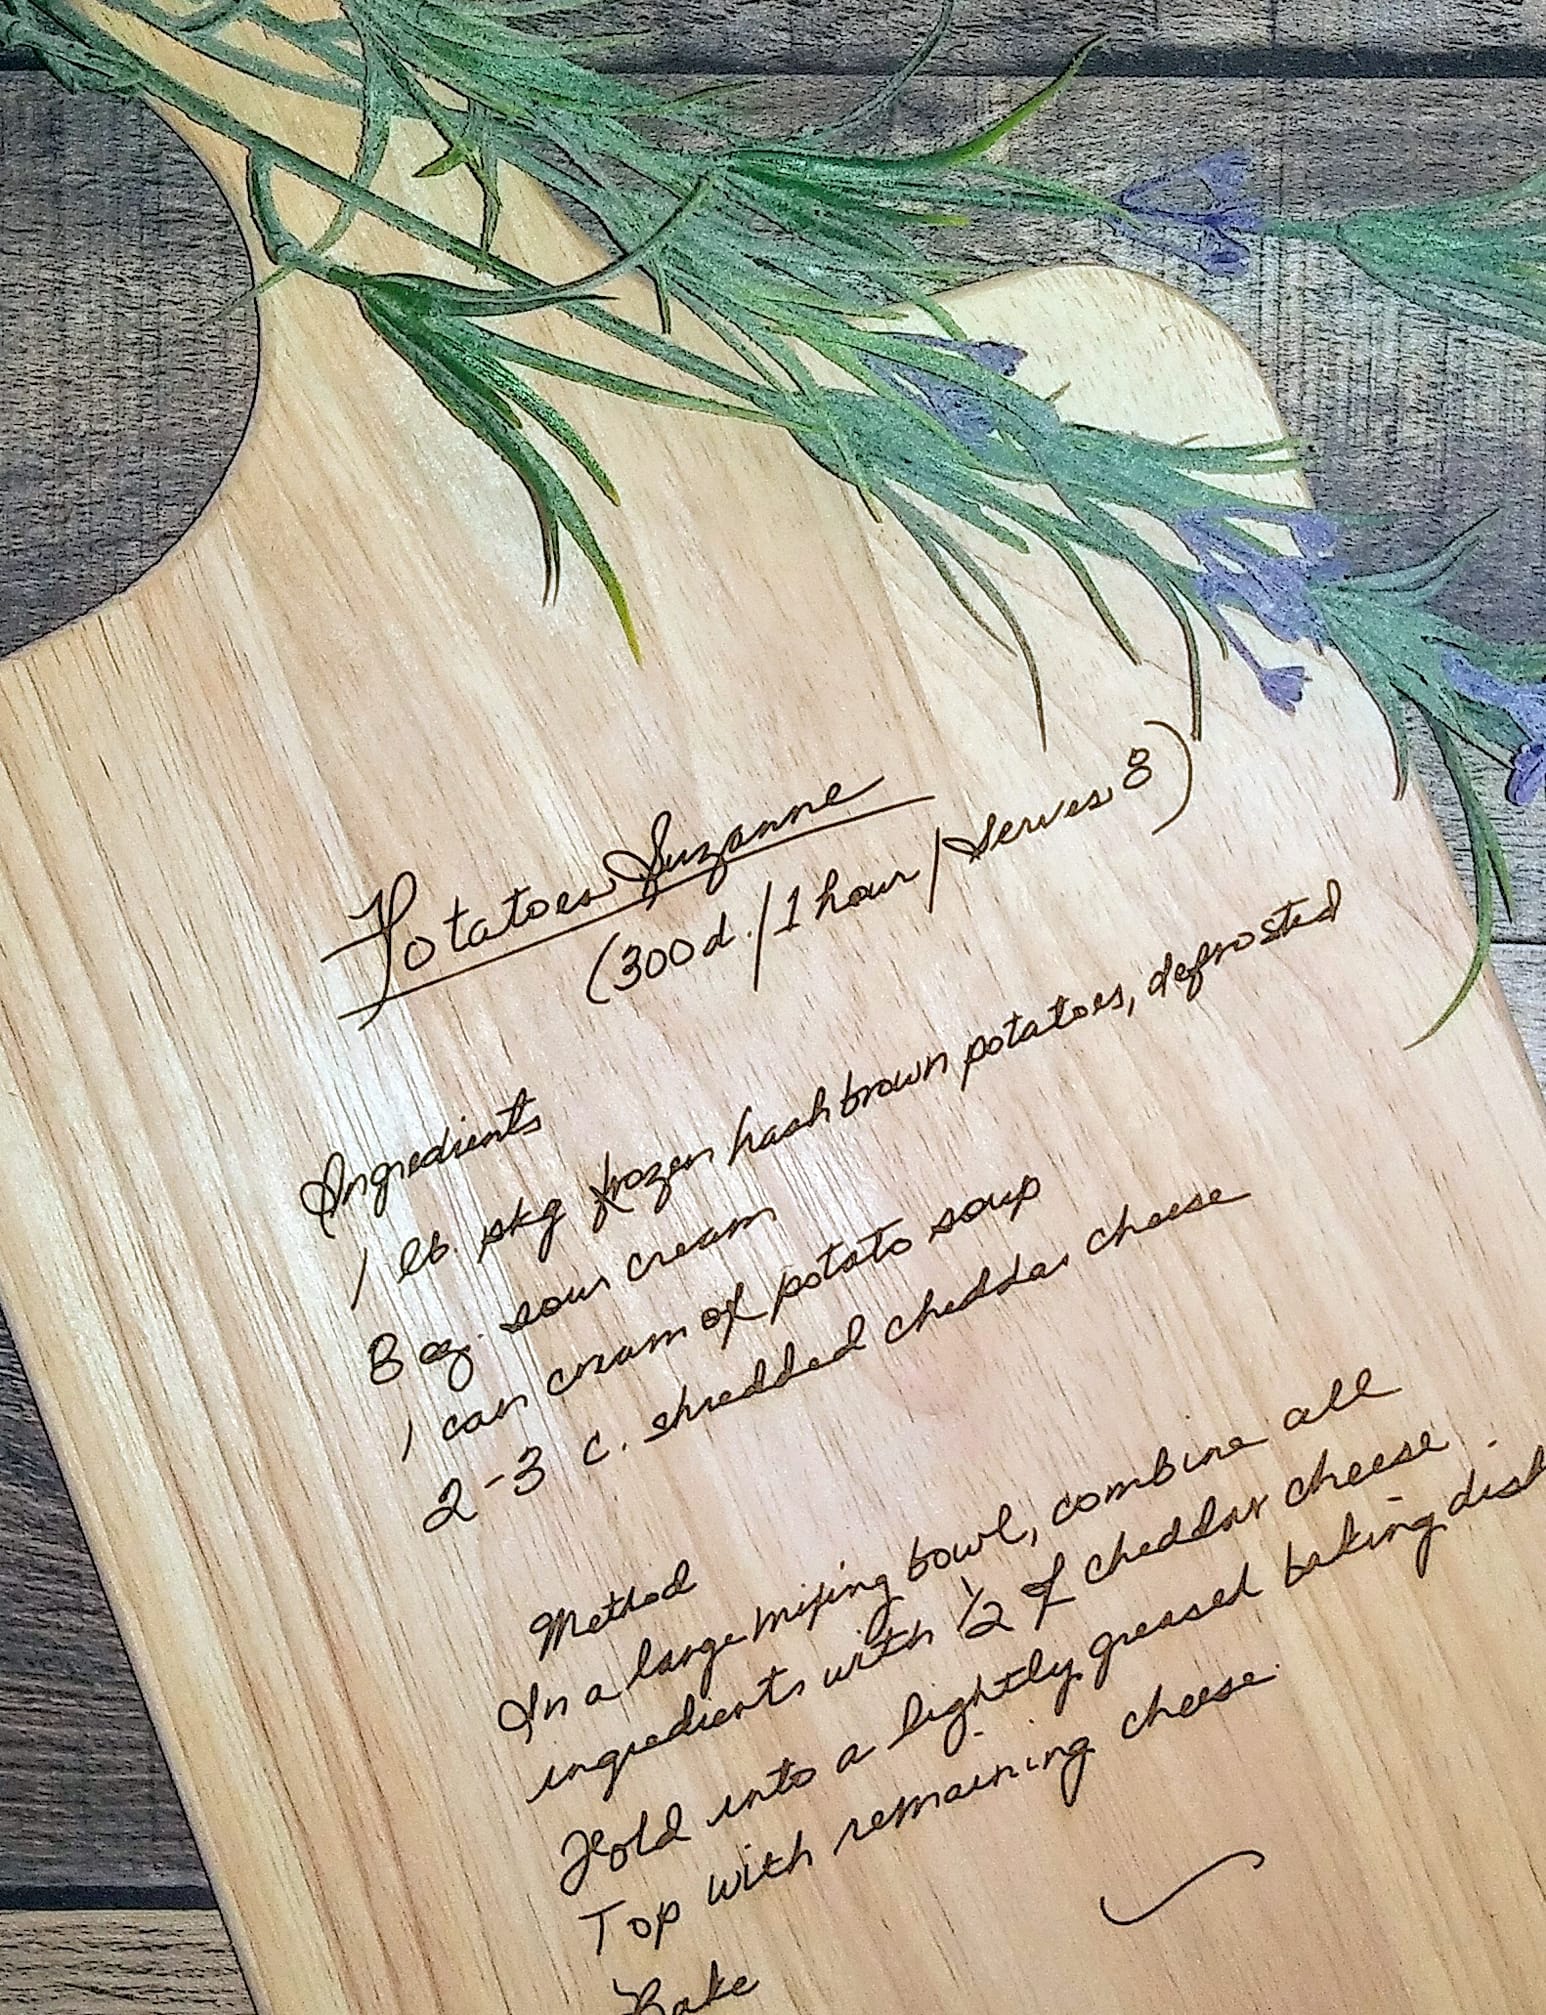 Potatoes Suzanne
(300 d. / 1 hour / Serves 8)
Ingredients
1 lb. pkg frozen hash brown potatoes, defrosted
8 oz. sour cream
1 can cream of potato soup
2-3 c. shredded cheddar cheese
Method
In a large mixing bowl, combine all
ingredients with 1/2 of cheddar cheese.
Fold into a lightly greased baking dish
Top with remaining cheese.
Bake